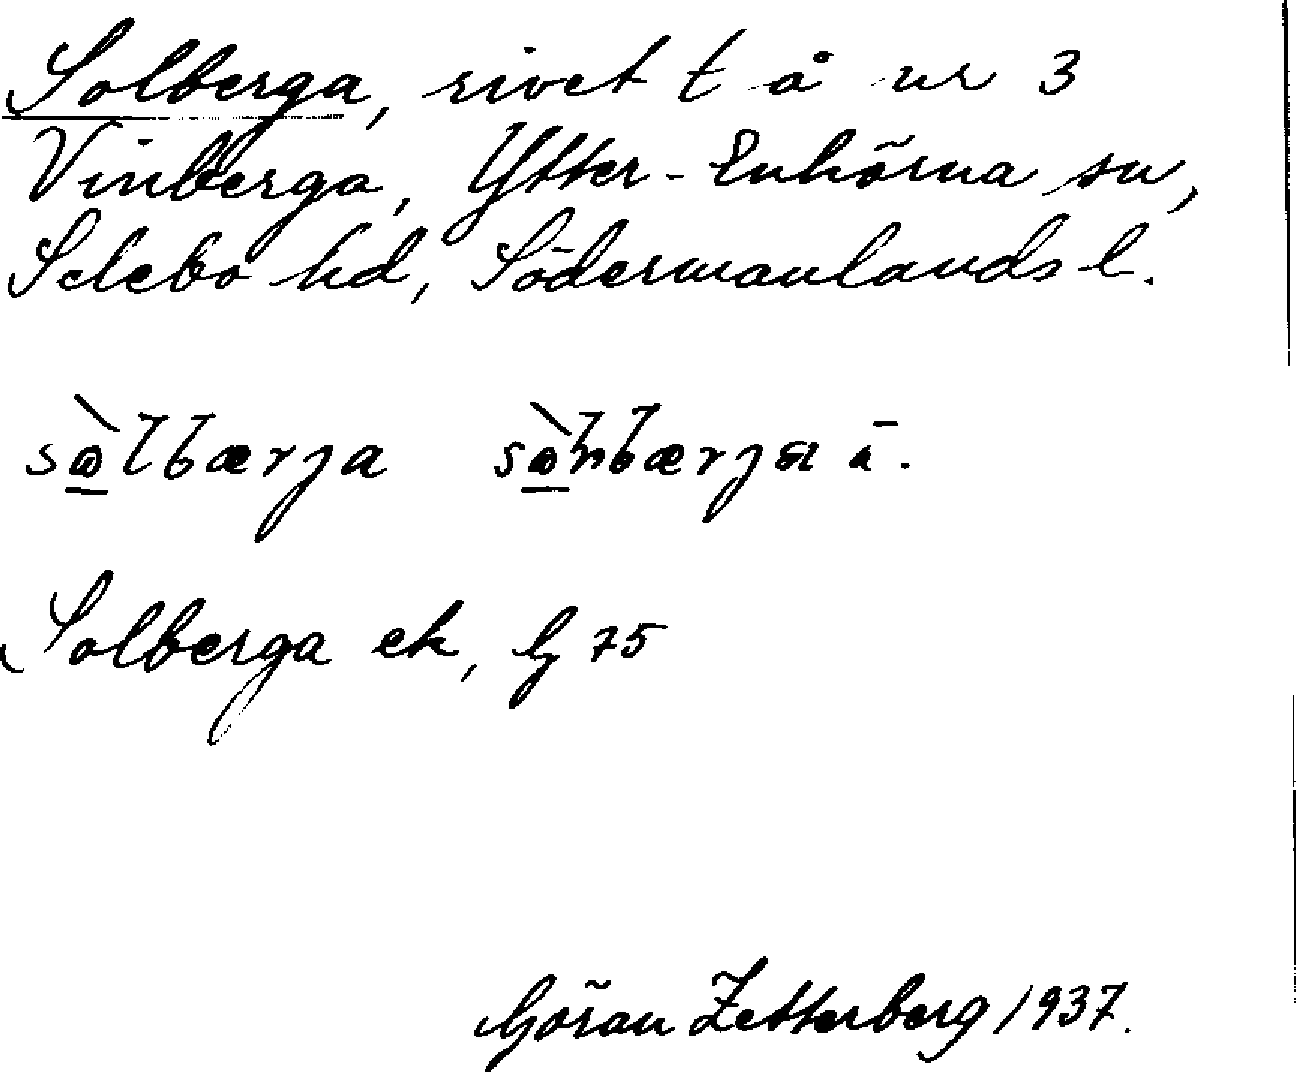 Solberga, rivet t å nr 3
Vinberga, Ytter-Enhörna sn,
Selebo hd, Södermanlands l.
Solberga ek, G 75
Göran Zetterberg 1937.